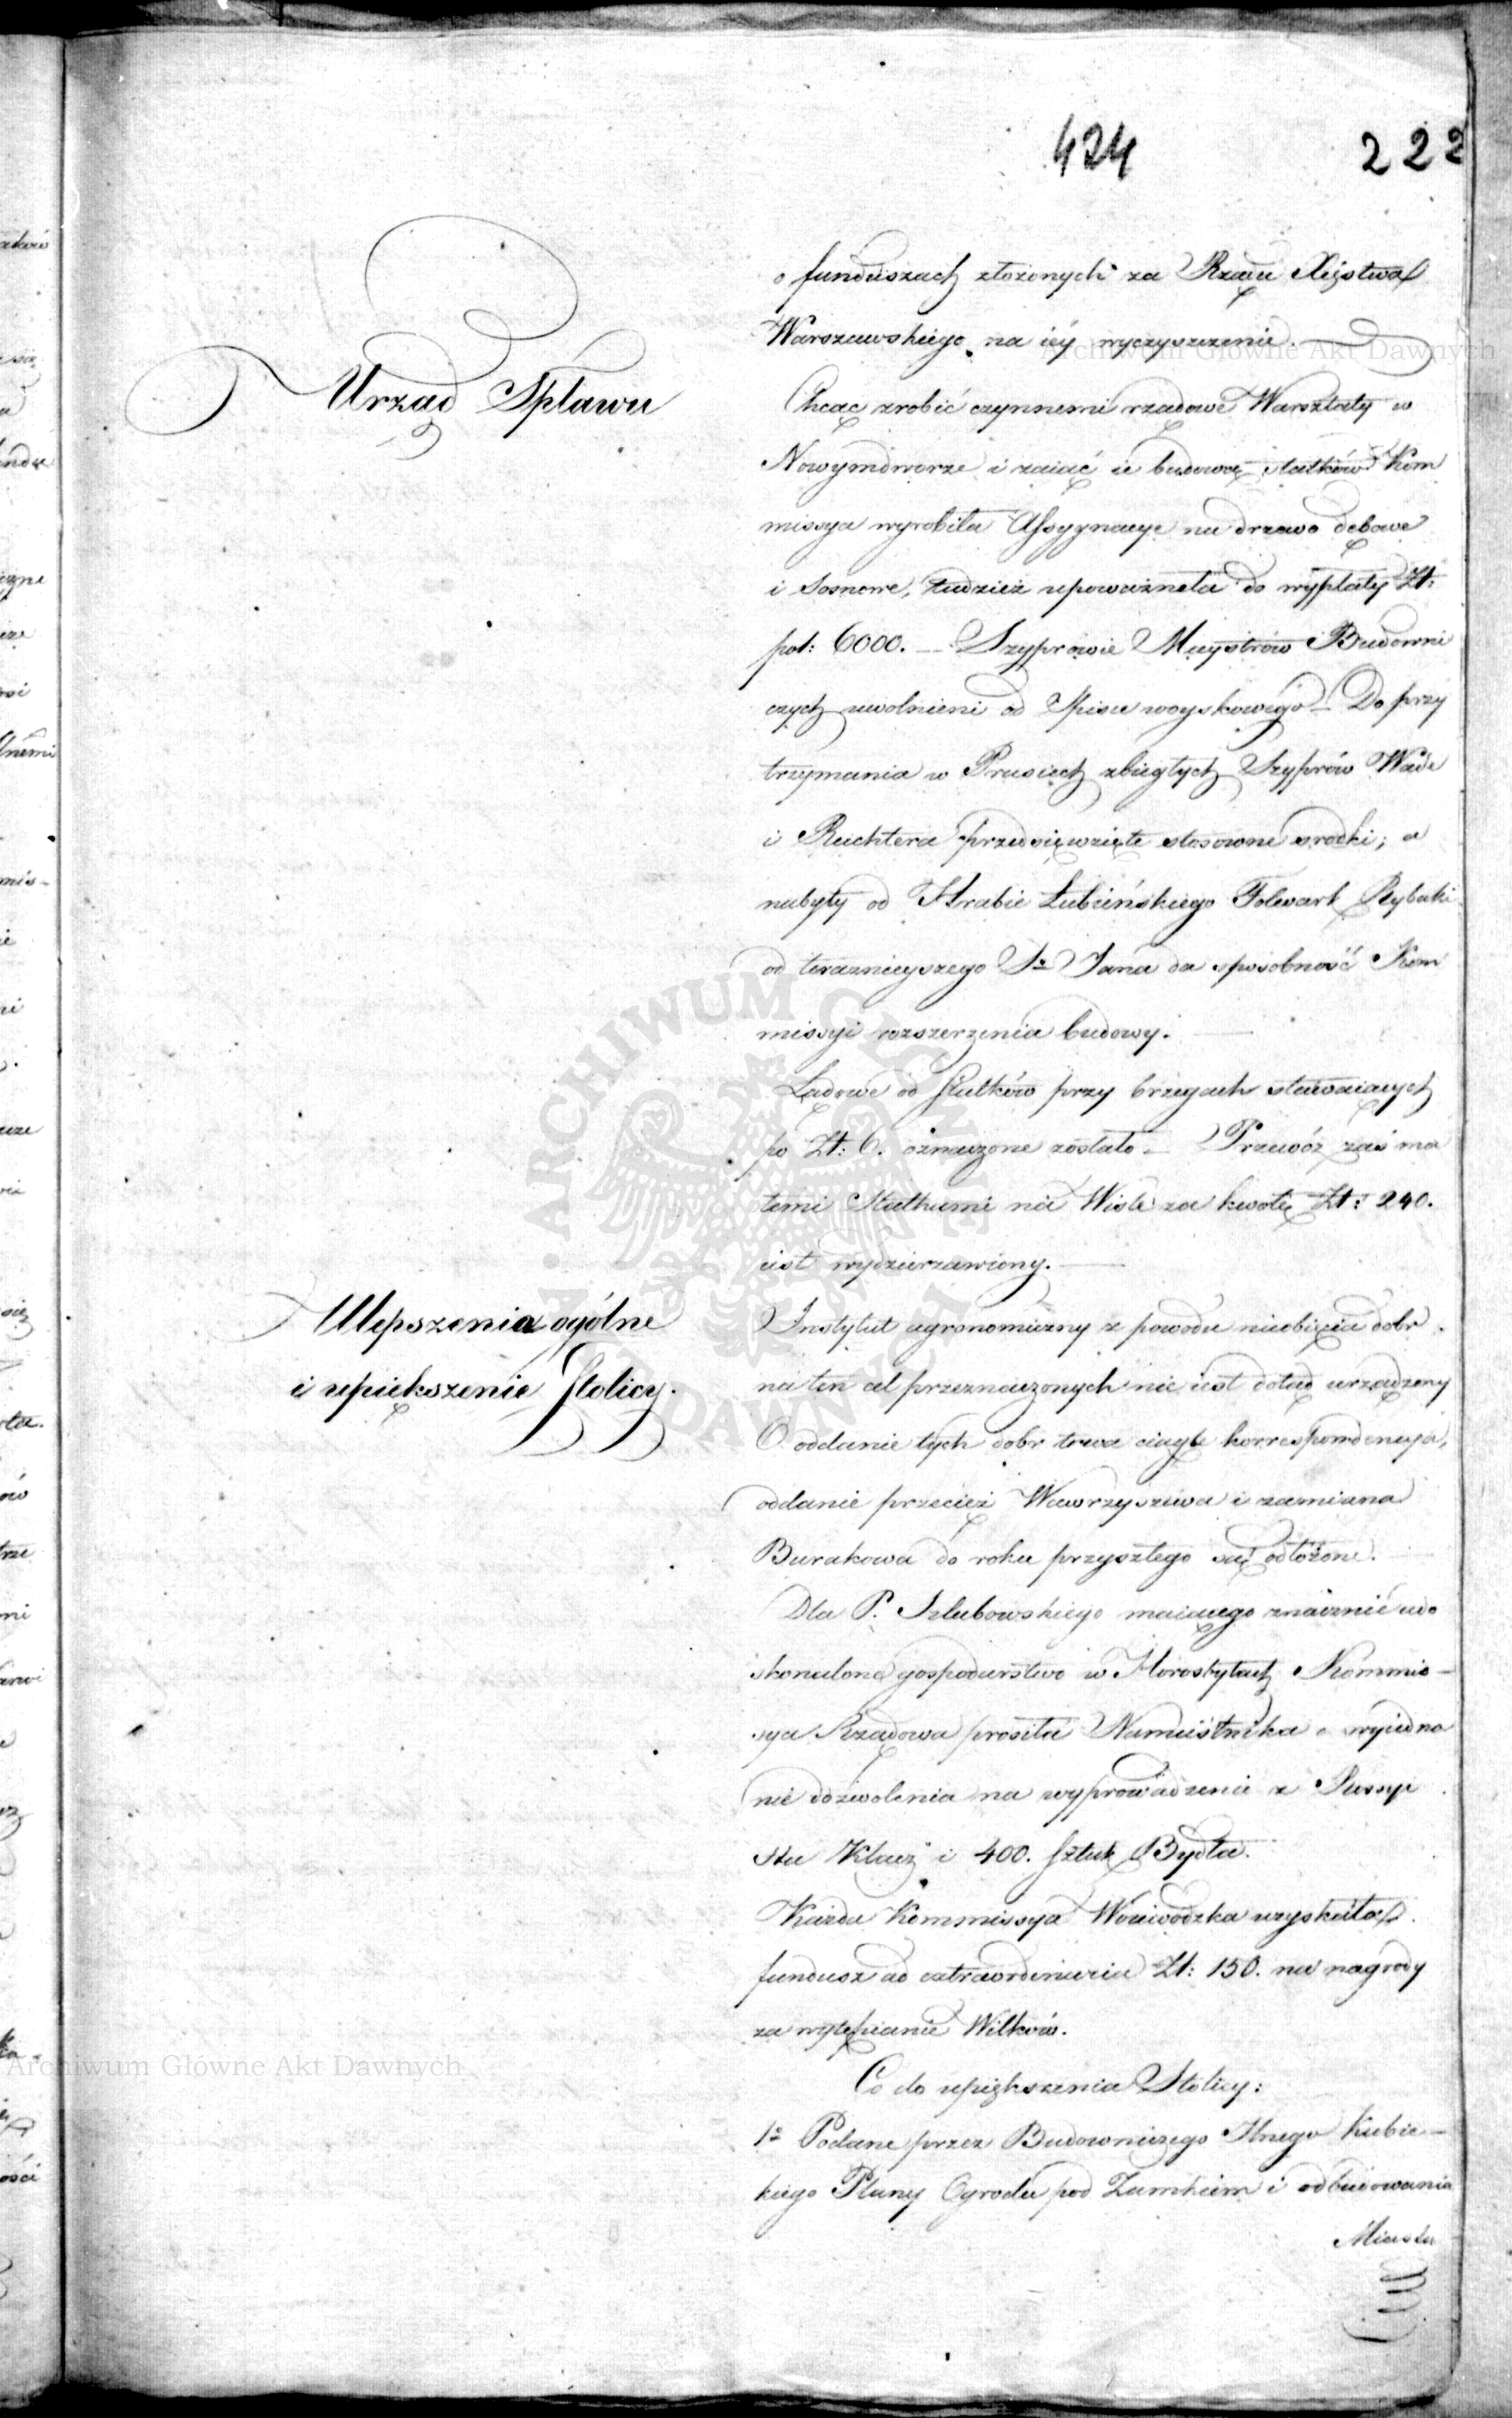 424
222
o funduszach złożonych za Rządu Xięstwa
Warszawskiego na iéy wyczyszczenie.
Urząd Spławu
Chcąc zrobić czynnemi rządowe Warsztaty w
Nowymdworze i zaiąć ie budową statków Kom
missya wyrobiła Assygnacye na drzewo dębowe
i sosnowe, tudzież upoważneła do wypłaty Zł:
pol: 6000. — Szyprowie Maystrów Budowni
czych uwolnieni od Spisu woyskowego — Do przy
trzymania w Prusiech zbiegłych Szyprów Wade
i Ruchtera przedsięwzięte stosowne srodki; a
nabyty od Hrabie Łubieńskiego Folwark Rybaki
od teraznieyszego So Jana da sposobność Kom
missyi rozszerzenia budowy.
Lądowe od statków przy brzegach stawaiących
po Zł: 6. oznaczone zostało — Przewóz zaś ma
łemi Statkami na Wiśle za kwotę Zł: 240.
iest wydzierzawiony.
Ulepszenia ogólne
i upiększenie Stolicy.
Instytut agronomiczny z powodu nieobięcia dobr
na ten cel przeznaczonych nie iest dotąd urządzony
O oddanie tych dobr trwa ciągle korrespondencja,
oddanie przecież Wawrzyszewa i zamiana
Burakowa do roku przyszłego są odłożone.
Dla P. Szlubowskiego maiącego znacznie udo
skonalone gospodarstwo w Horostytach Kommis—
sya Rządowa prosiła Namiestnika o wyiedna
nie dozwolenia na wyprowadzenie z Russyi
stu Klacz i 400. sztuk Bydła.
Każda Kommissya Woiewodzka uzyskała
fundusz ad extraordinaria Zł: 150. na nagrody
za wytępianie Wilków.
Co do upiększenia Stolicy:
1o Podane przez Budowniczego Jlnego Kubic—
kiego Plany Ogrodu pod Zamkiem i odbudowania
Miasta
Archiwum Główne Akt Dawnych
Archiwum Główne Akt Dawnych
ARCHIWUM GŁÓWNE AKT DAWNYCH